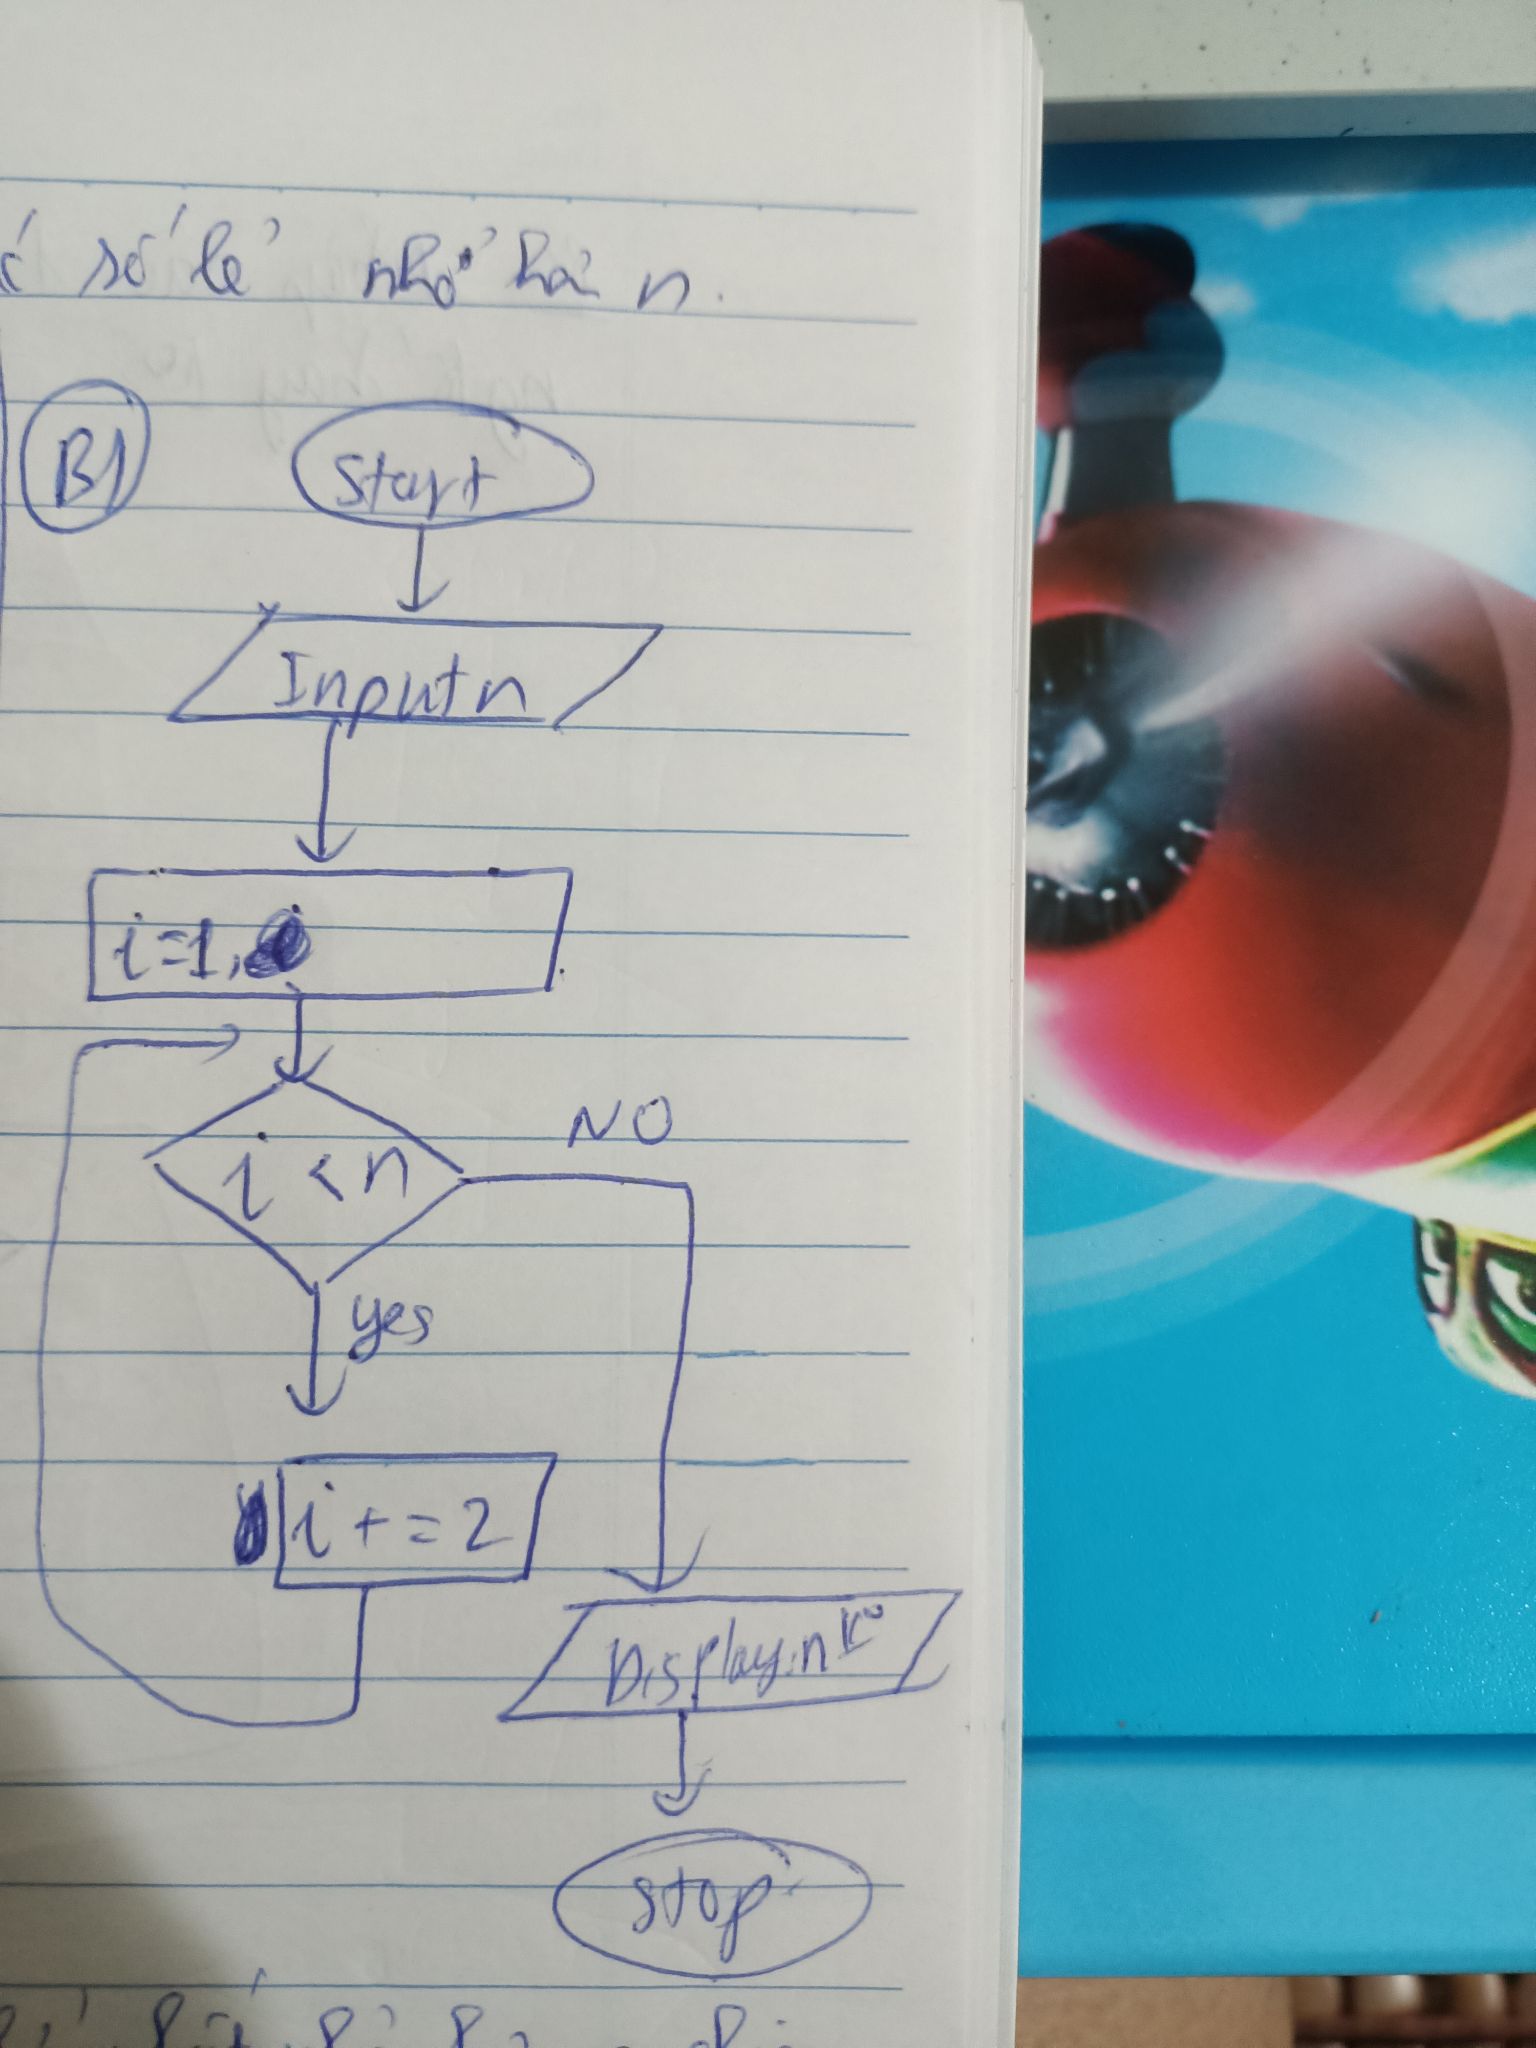 số lẻ nhỏ hơn n.
B1
Start
Input n
i=1,
i < n
NO
yes
i += 2
Display: n
stop